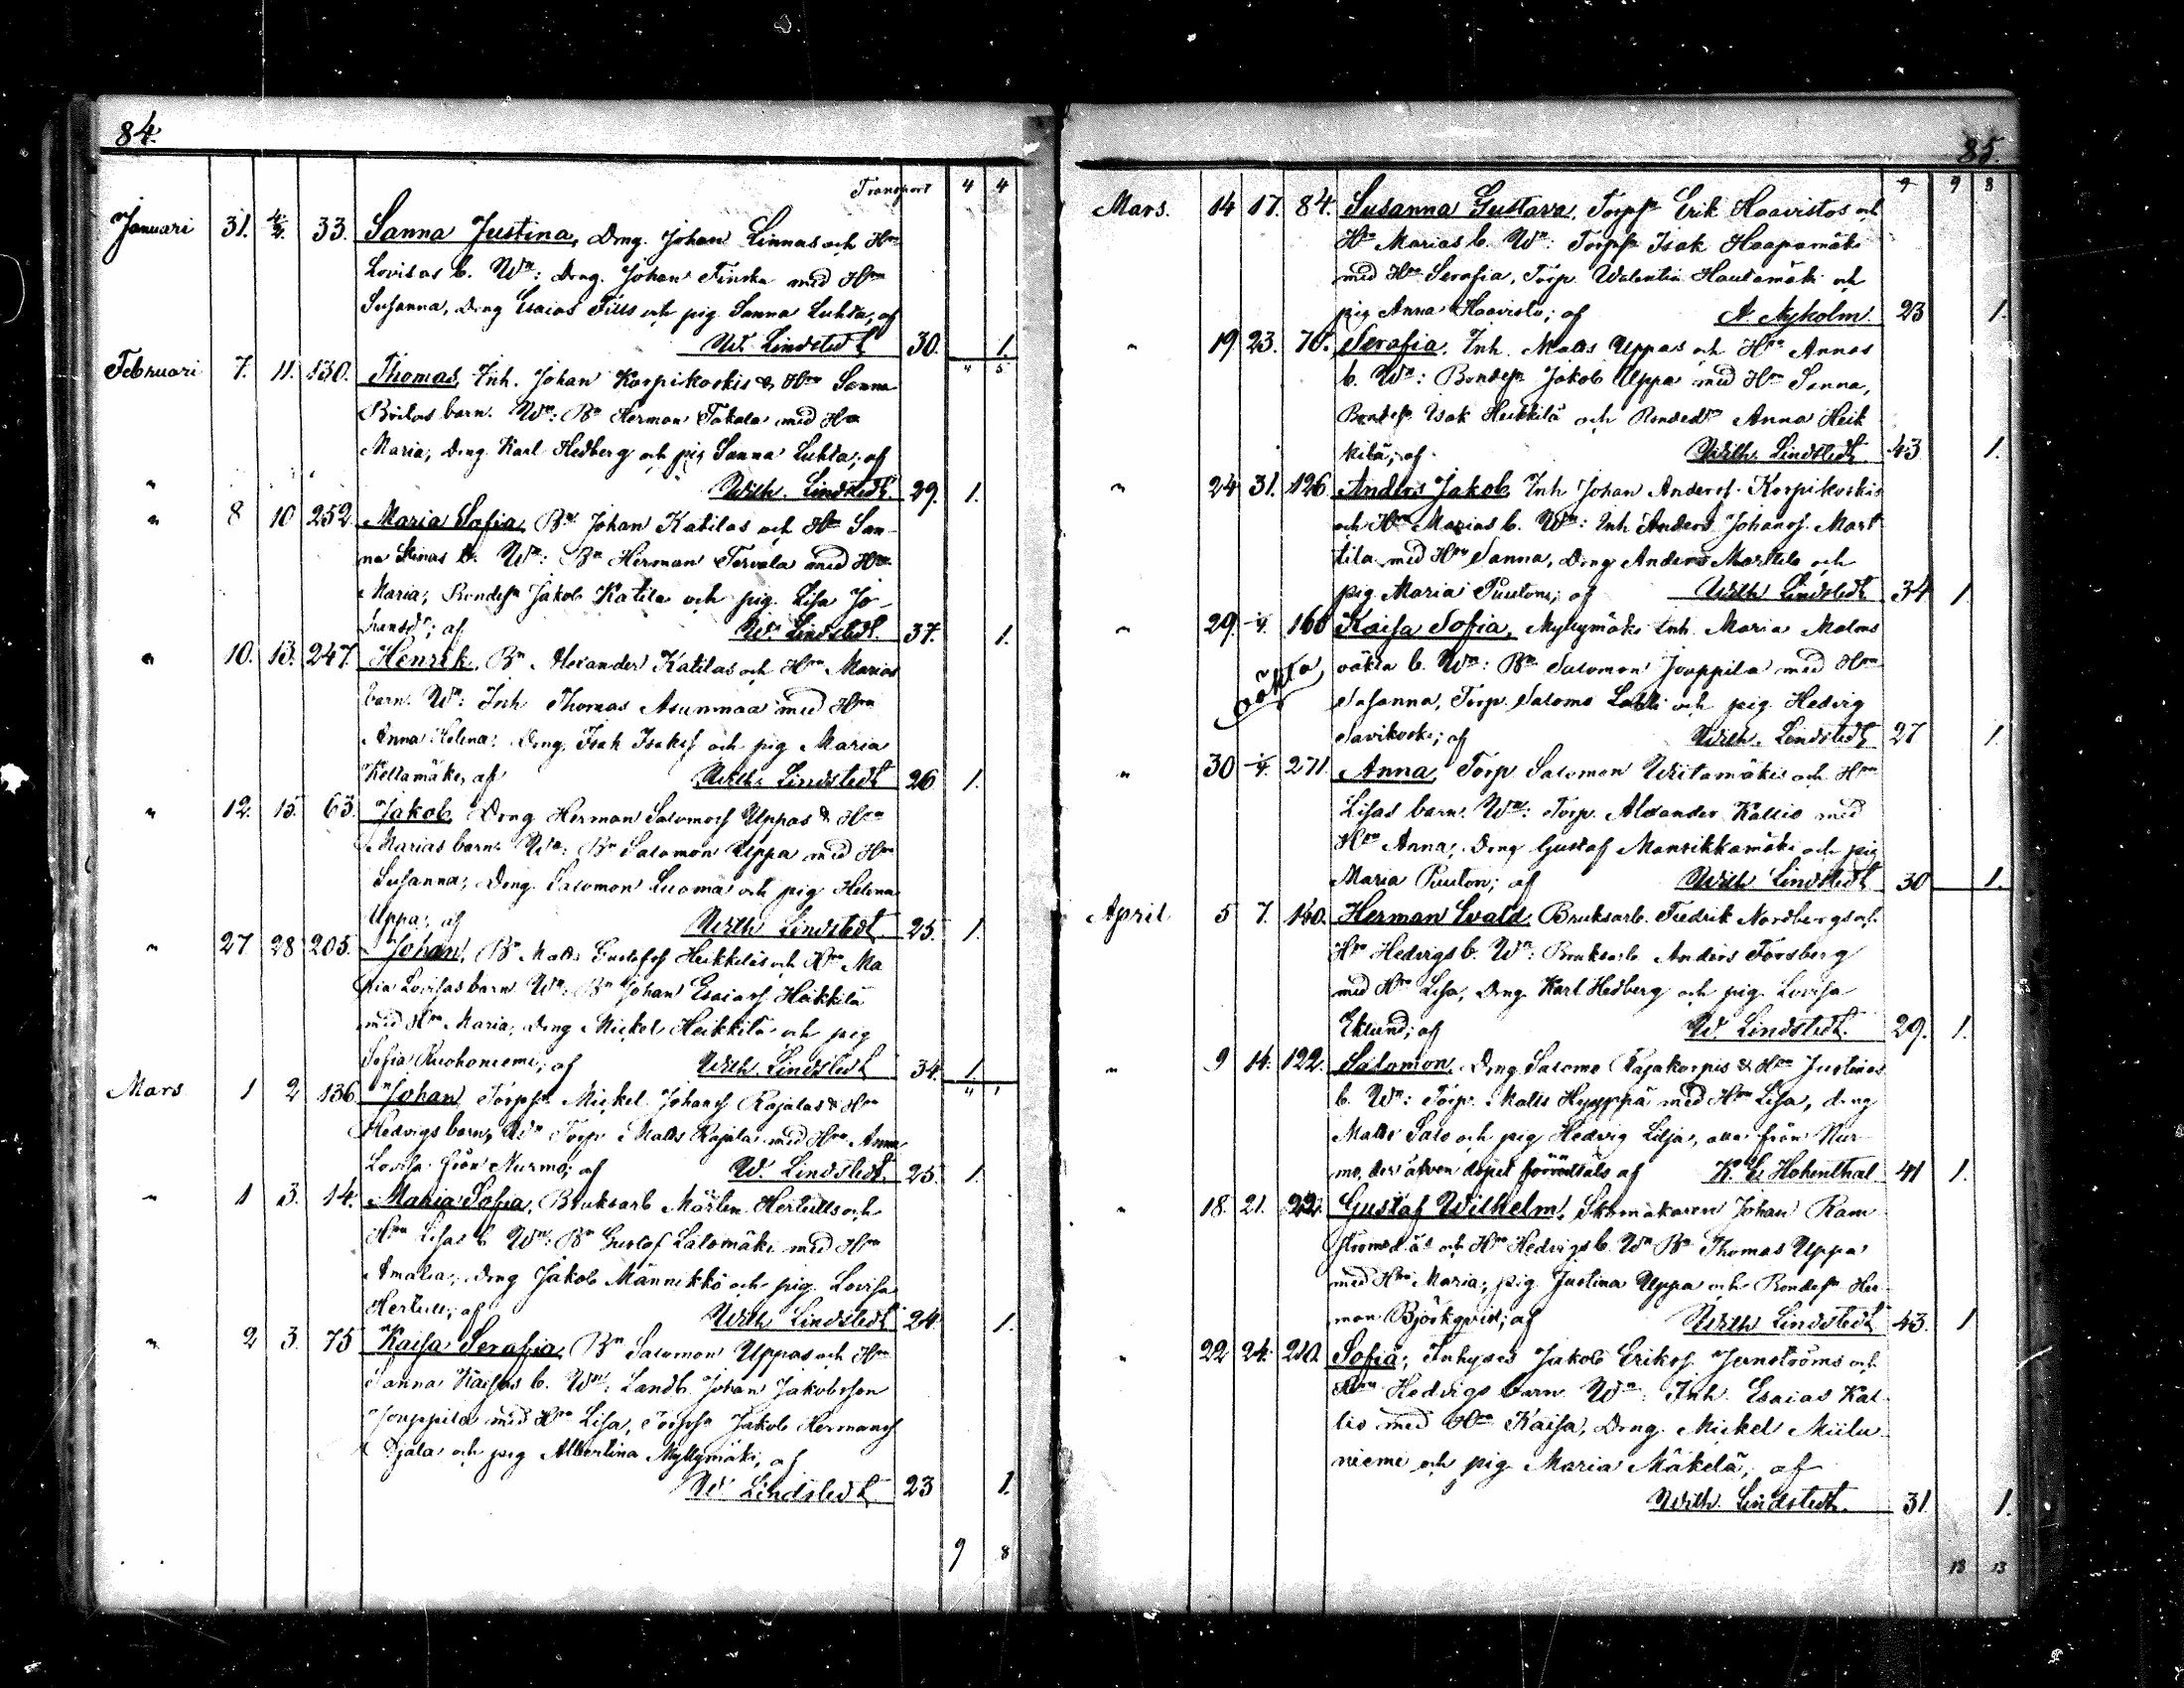 84.
Transport 4 4
Januari 31. 4/2. 33. Sanna Justina, Dreng. Johan Linnas och Hru
Lovisas b. Wn: Dreng. Johan Finska med Hru
Susanna, Dreng Esaias Fills och pig. Sanna Luhta, af
W. Lindstedt 30. 1.
" 5
Februari 7. 11. 130. Thomas, Inh. Johan Korpikoskis & Hru Sanna
Britas barn. Wn: Bn Herman Takala med Hu
Maria, Dreng Karl Hedberg och pig Sanna Luhta; af
" Wilh. Lindstedt. 29. 1.
" 8 10 252. Maria Sofia, Bn Johan Katilas och Hru San-
na Stinas b. Wn: Bn Herman Tervala med Hru
Maria, Bondes. Jakob Katila och pig. Lisa Jo-
hansdr; af W. Lindstedt. 37. 1.
" 10. 13. 247. Henrik, Bn Alexander Katilas och Hru Marias
barn. Wn: Inh Thomas Asunmaa med Hru
Anna Helena; Dreng. Isak Isakss och pig Maria
Keltamäki, af Wilh. Lindstedt 26 1.
" 12. 15. 63. Jakob, Dreng Herman Salomoss Uppas & Hru
Marias barn. Wn: Bn Salomon Uppa med Hru
Susanna; Dreng. Salomon Luoma och pig Helena
Uppa; af Wilh Lindstedt. 25. 1.
" 27 28 205. Johan, Bn Matts Gustafss Heikkiläs och Hru Ma
ria Lovisas barn. Wn: Bn Johan Esaiass Heikkilä
med Hru Maria, Dreng Mickel Heikkilä och pig
Sofia Ruohoniemi; af Wilh. Lindstedt 34. 1.
" 1
Mars 1 2 136 Johan, Torpsn. Mickel Johanss Rajalas & Hru
Hedvigs barn, Wn Torp. Matts Rajala med Hru Anna
Lovisa från Nurmo; af W. Lindstedt. 25. 1.
" 1 3. 14. Maria Sofia, Bruksarb Mårten Hertulls och
Hru Lisas b. Wn: Bn Gustaf Latomäki med Hru
Amalia; Dreng Jakob Männikkö och pig. Lovisa
Hertull; af Wilh Lindstedt 24. 1.
" 2 3. 75 Kaisa Serafia, Bn Salomon Uppas och Hru
Sanna Kaisas b. Wn: Landb. Johan Jakobsson
Jouppila med Hru Lisa, Torpsn Jakob Hermanss
Ojala och pig Albertina Myllymäki, af
W. Lindstedt 23 1.
9 8
85.
9 9 8
Mars. 14 17. 84. Susanna Gustava, Torpsn Erik Haavistos och
Hru Marias b. Wn: Torpsn Isak Haapamäki
med Hru Serafia, Torp. Walentin Hautamäki och
pig Anna Haavisto; af A. Nyholm 23 1.
" 19. 23. 70. Serafia, Inh. Matts Uppas och Hru Annas
b. Wn: Bondesn Jakob Uppa med Hru Sanna,
Bondesn Isak Heikkilä och Bondedr Anna Heik
kilä; af Wilh. Lindstedt 43 1.
" 24 31. 126. Anders Jakob, Inh Johan Anderss. Korpikoskis
och Hru Marias b. Wn: Inh Anders Johanss. Mart
tila med Hru Sanna, Dreng Anders Marttila och
pig. Maria Puutoni; af Wilh Lindstedt 34 1
" 29. 1/4. 160 Kaisa Sofia, Myllymäki Inh. Maria Malms
oäkta oäkta b. Wn: Bn Salomon Jouppila med Hru
Susanna, Torp. Salomo Lahti och pig. Hedvig
Savikoski; af Wilh. Lindstedt 27 1.
" 30 1/4. 271. Anna, Torp Salomon Wiitamäkis och Hru
Lisas barn. Wn: Torp. Alexander Kallio med
Hru Anna; Dreng Gustaf Mansikkamäki och pig
Maria Puuton; af Wilh Lindstedt 30 1.
April 5 7. 140. Herman Evald, Bruksarb. Fredrik Nordbergs och
Hru Hedvigs b. Wn: Bruksarb. Anders Forsberg
med Hru Lisa, Dreng Karl Hedberg och pig. Lovisa
Eklund; af W. Lindstedt. 29. 1.
" 9 14. 122. Salomon, Dreng Salomo Rajakorpis & Hru Justinas
b. Wn: Torp. Matts Hyyppä med Hru Lisa, dreng
Matts Salo och pig Hedvig Lilja, alla från Nur-
mo, der äfven dopet förrättats af K. E. Hohenthal 41 1.
" 18. 21. 22. Gustaf Wilhelm, Skomakaren Johan Ram
ströms d.ä. och Hru Hedvigs b. Wn Bn Thomas Uppa
med Hru Maria; pig. Justina Uppa och Bondesn Her-
man Björkqvist; af Wilh Lindstedt 43. 1
" 22 24. 210. Sofia, Inhyses Jakob Erikss. Jernströms och
Hru Hedvigs barn. Wn: Inh. Esaias Kal-
lio med Hru Kaisa, Dreng. Mickel Miilu
niemi och pig Maria Mäkelä, af
Wilh. Lindstedt. 31. 1.
13 13